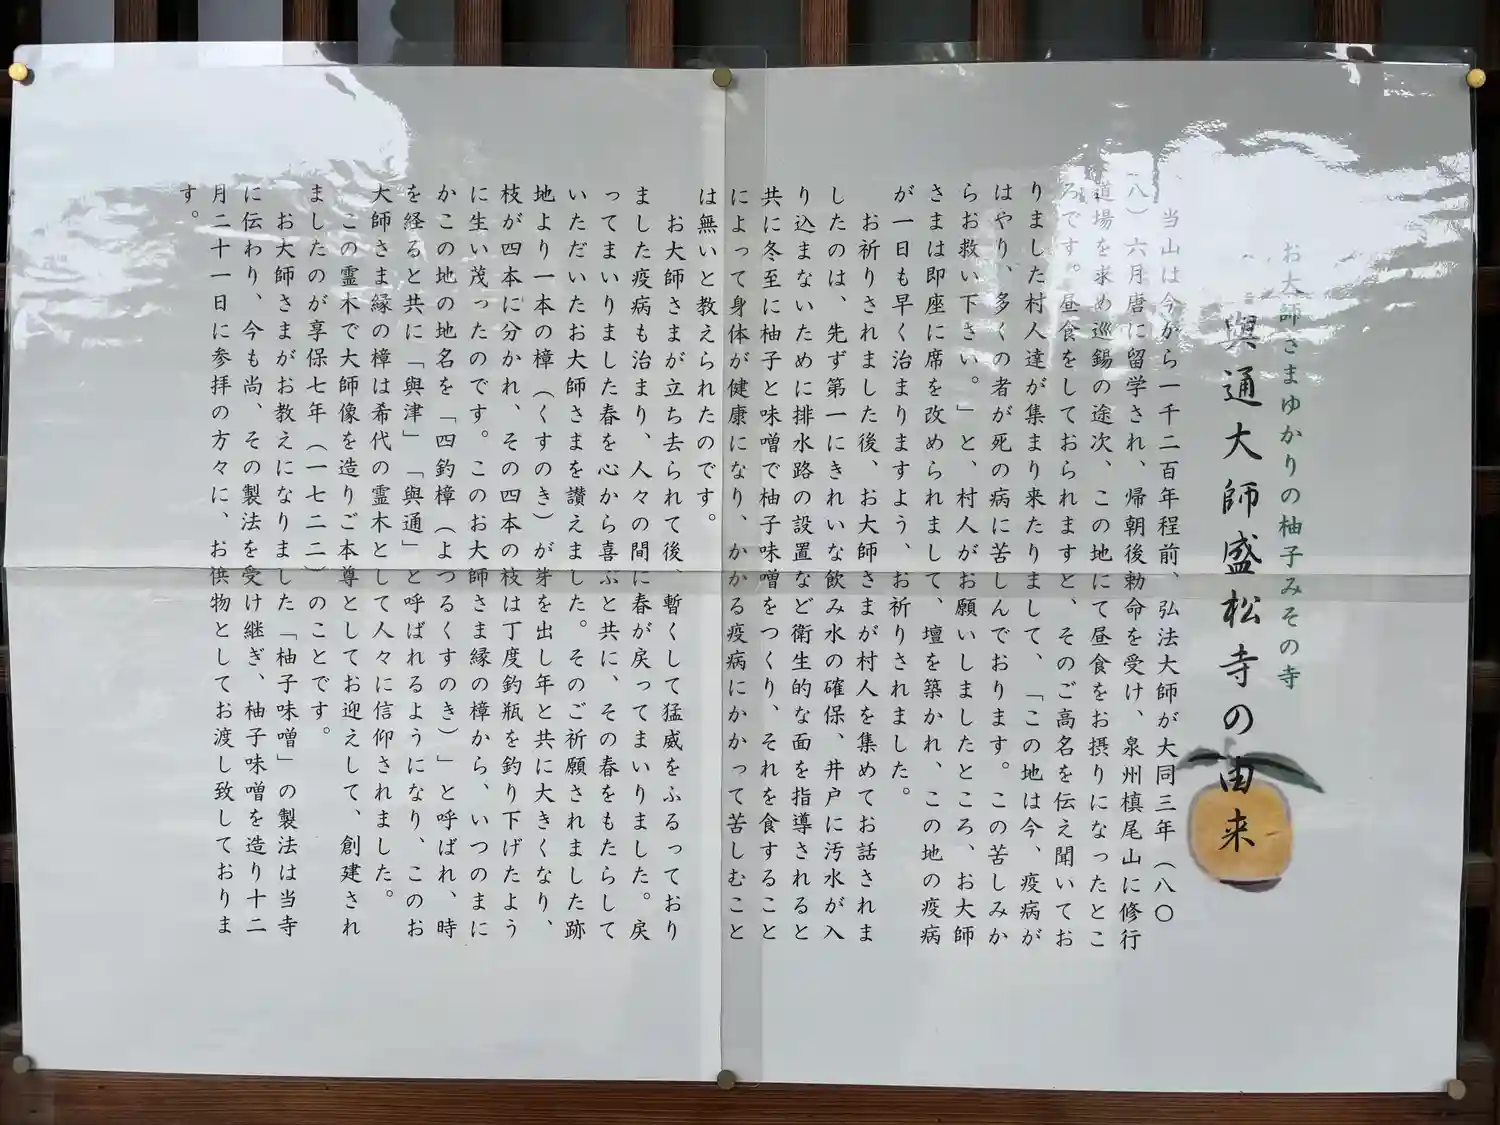 お大師さまゆかりの柚子みその寺
與通大師盛松寺の由来
当山は今から一千二百年程前、弘法大師が大同三年（八〇
八）六月唐に留学され、帰朝後勅命を受け、泉州槙尾山に修行
道場を求め巡錫の途次、この地にて昼食をお摂りになったとこ
ろです。昼食をしておられますと、そのご高名を伝え聞いてお
りました村人達が集まり来たりまして、「この地は今、疫病が
はやり、多くの者が死の病に苦しんでおります。この苦しみか
らお救い下さい。」と、村人がお願いしましたところ、お大師
さまは即座に席を改められまして、壇を築かれ、この地の疫病
が一日も早く治まりますよう、お祈りされました。
お祈りされました後、お大師さまが村人を集めてお話されま
したのは、先ず第一にきれいな飲み水の確保、井戸に汚水が入
り込まないために排水路の設置など衛生的な面を指導されると
共に冬至に柚子と味噌で柚子味噌をつくり、それを食すること
によって身体が健康になり、かかる疫病にかかって苦しむこと
は無いと教えられたのです。
お大師さまが立ち去られて後、暫くして猛威をふるっており
ました疫病も治まり、人々の間に春が戻ってまいりました。戻
ってまいりました春を心から喜ぶと共に、その春をもたらして
いただいたお大師さまを讃えました。そのご祈願されました跡
地より一本の樟（くすのき）が芽を出し年と共に大きくなり、
枝が四本に分かれ、その四本の枝は丁度釣瓶を釣り下げたよう
に生い茂ったのです。このお大師さま縁の樟から、いつのまに
かこの地の地名を「四釣樟（よつるくすのき）」と呼ばれ、時
を経ると共に「與津」「與通」と呼ばれるようになり、このお
大師さま縁の樟は希代の霊木として人々に信仰されました。
この霊木で大師像を造りご本尊としてお迎えして、創建され
ましたのが享保七年（一七二二）のことです。
お大師さまがお教えになりました「柚子味噌」の製法は当寺
に伝わり、今も尚、その製法を受け継ぎ、柚子味噌を造り十二
月二十一日に参拝の方々に、お供物としてお渡し致しておりま
す。